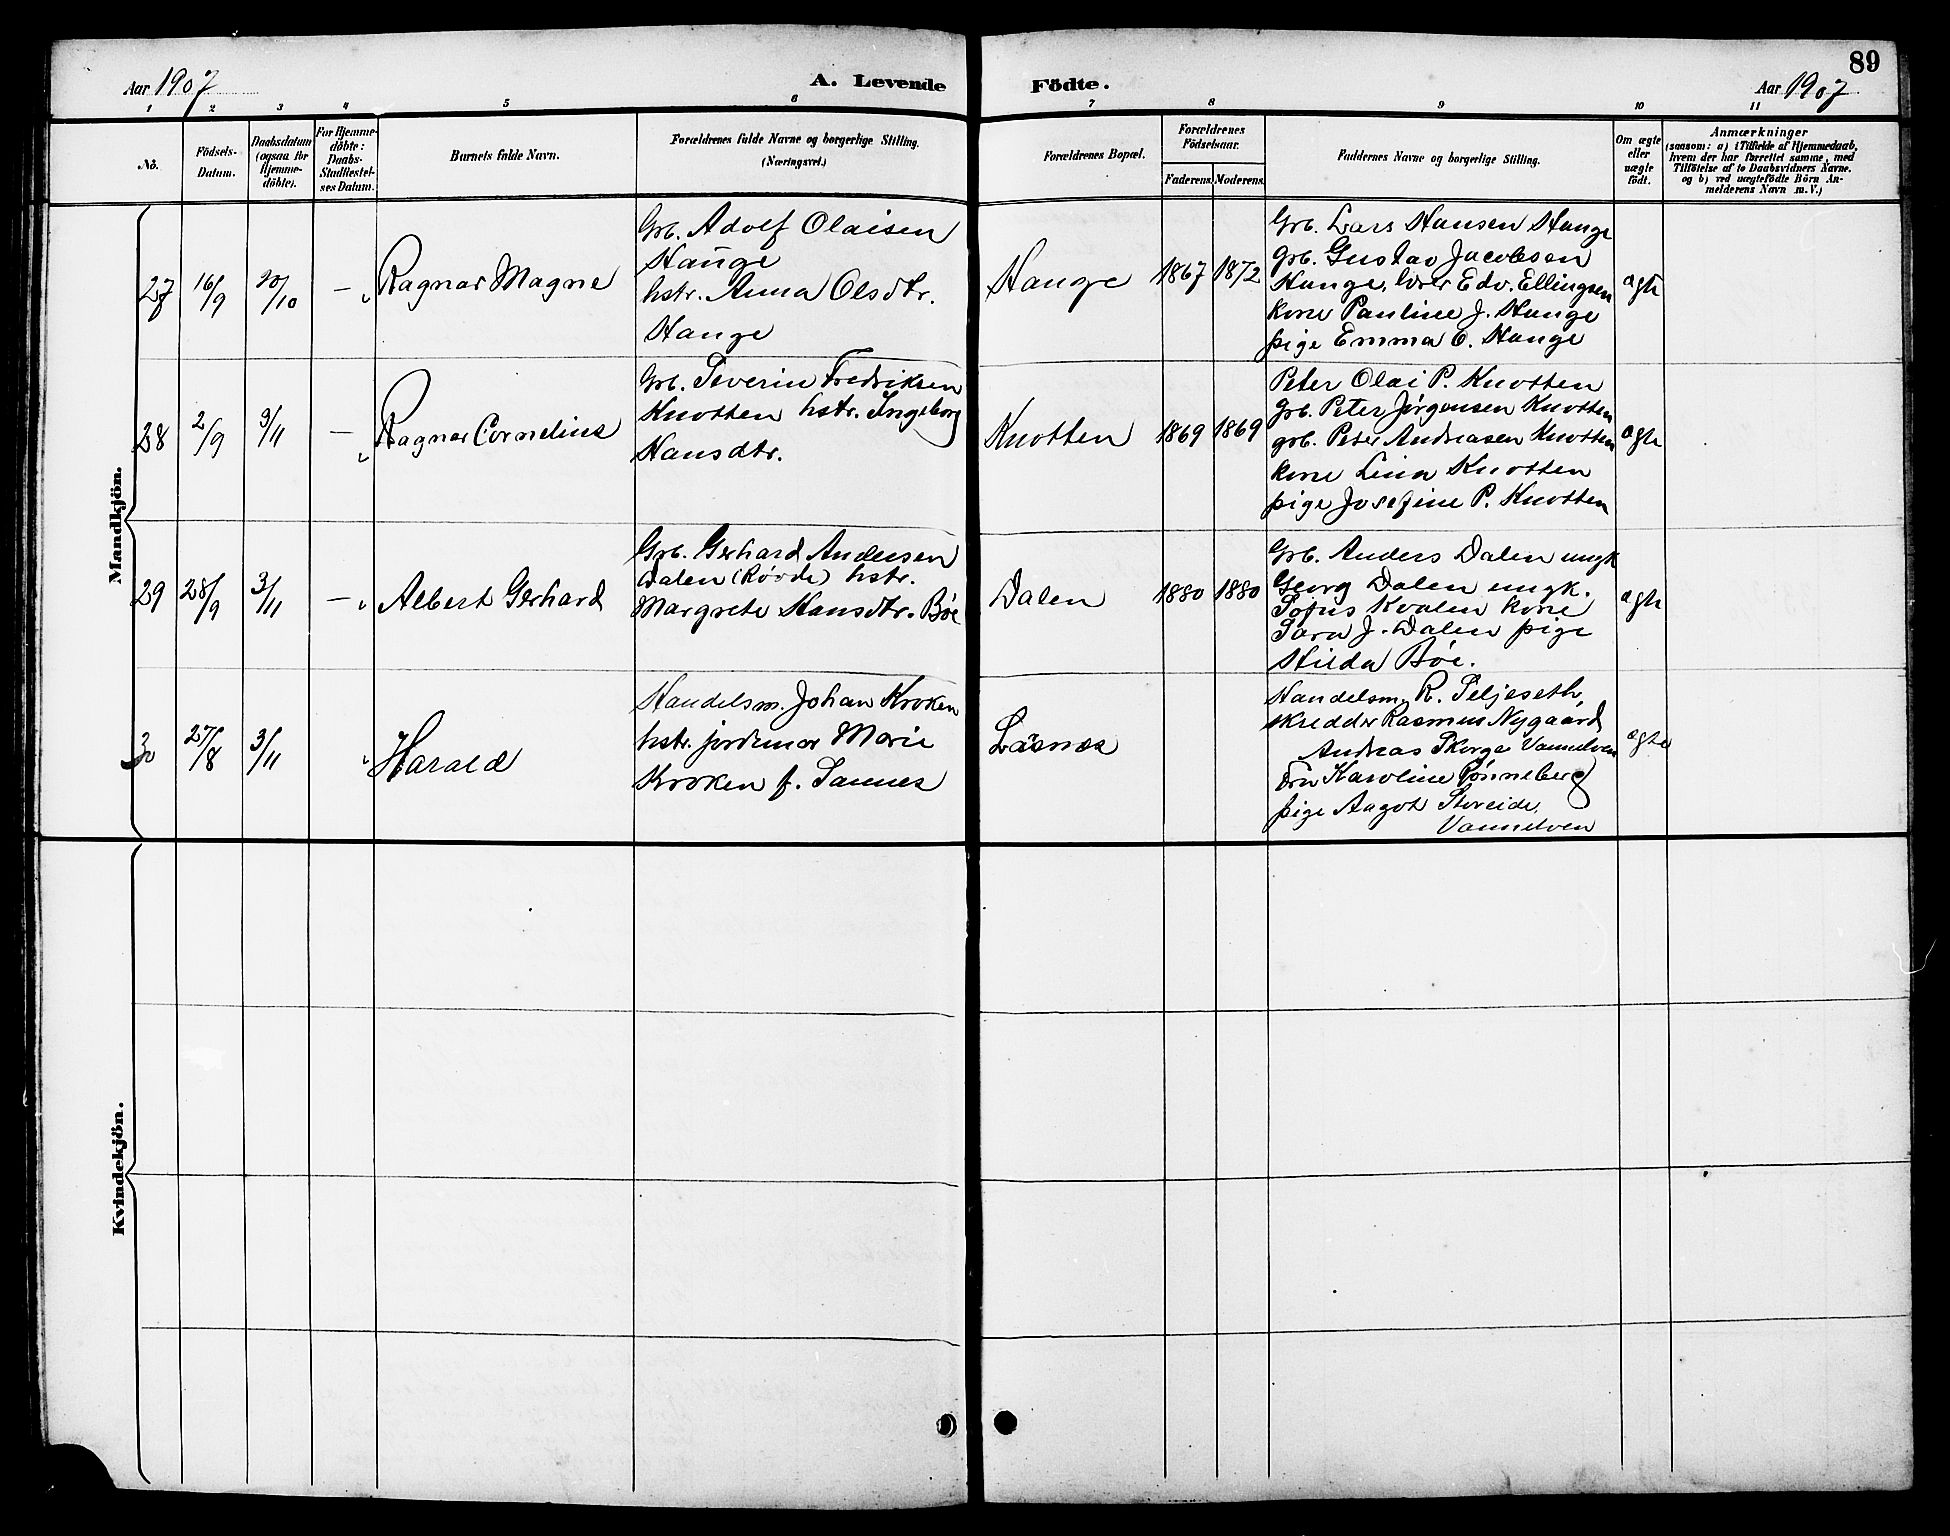 89
Aar 1907
A. Levende Födte.
Aar 1907
1 2 3 4 5 6 7 8 9 10 11
No.
Födsels-Datum.
Daabsdatum (ogsaa for Hjemme-döbte).
For Hjemme-döbte: Daabs-Stadfæstel-ses Datum.
Barnets fulde Navn.
Forældrenes fulde Navne og borgerlige Stilling.
(Næringsvei.)
Forældrenes Bopæl.
Forældrenes Födselsaar.
Faderens. Moderens.
Faddernes Navne og borgerlige Stilling.
Om ægte eller uægte födt.
Anmærkninger
(saasom: a) i Tilfælde af Hjemmedaab,
hvem der har forrettet samme, med
Tilföielse af to Daabsvidners Navne.
og b) ved uægtefödte Börn An-
melderens Navn m. V.)
Mandkjön.
27 16/9 20/10 — Ragnar Magne
Grb. Adolf Olaisen
Hauge
hstr. Anna Olsdtr.
Hauge
Hauge 1867 1872
Grb. Lars Hansen Hauge
grb. Gustav Jacobsen
Hauge, lærer Edv. Ellingsen
kone Pauline J. Hauge
pige Emma O. Hauge
ægte
28 2/9 3/11 — Ragnar Cornelius
Grb. Severin Fredriksen
Knotten hstr. Ingeborg
Hansdtr.
Knotten 1869 1869
Peter Olai P. Knotten
grb. Peter Jörgensen Knotten
grb. Peter Andreasen Knotten
kone Lina Knotten
pige Josefine P. Knotten
ægte
29 28/9 3/11 — Albert Gerhard
Grb. Gerhard Andersen
Dalen (Røvde) hstr.
Margrete Hansdtr. Böe
Dalen 1880 1880
Grb. Anders Dalen ungk
Georg Dalen ungk.
Sofus Kvalen kone
Sara J. Dalen pige
Hilda Böe.
ægte
30 27/8 3/11 Harald
Handelsm. Johan Kroken
hstr. jordmor Marie
Kroken f. Sannes
Laasnes
Handelsm. R. Seljeseth,
skredder Rasmus Nygaard
Andreas Skorge Vannelven
Fru Karoline Rønneberg
pige Aagot Storeide,
Vannelven
ægte
Kvindekjön.